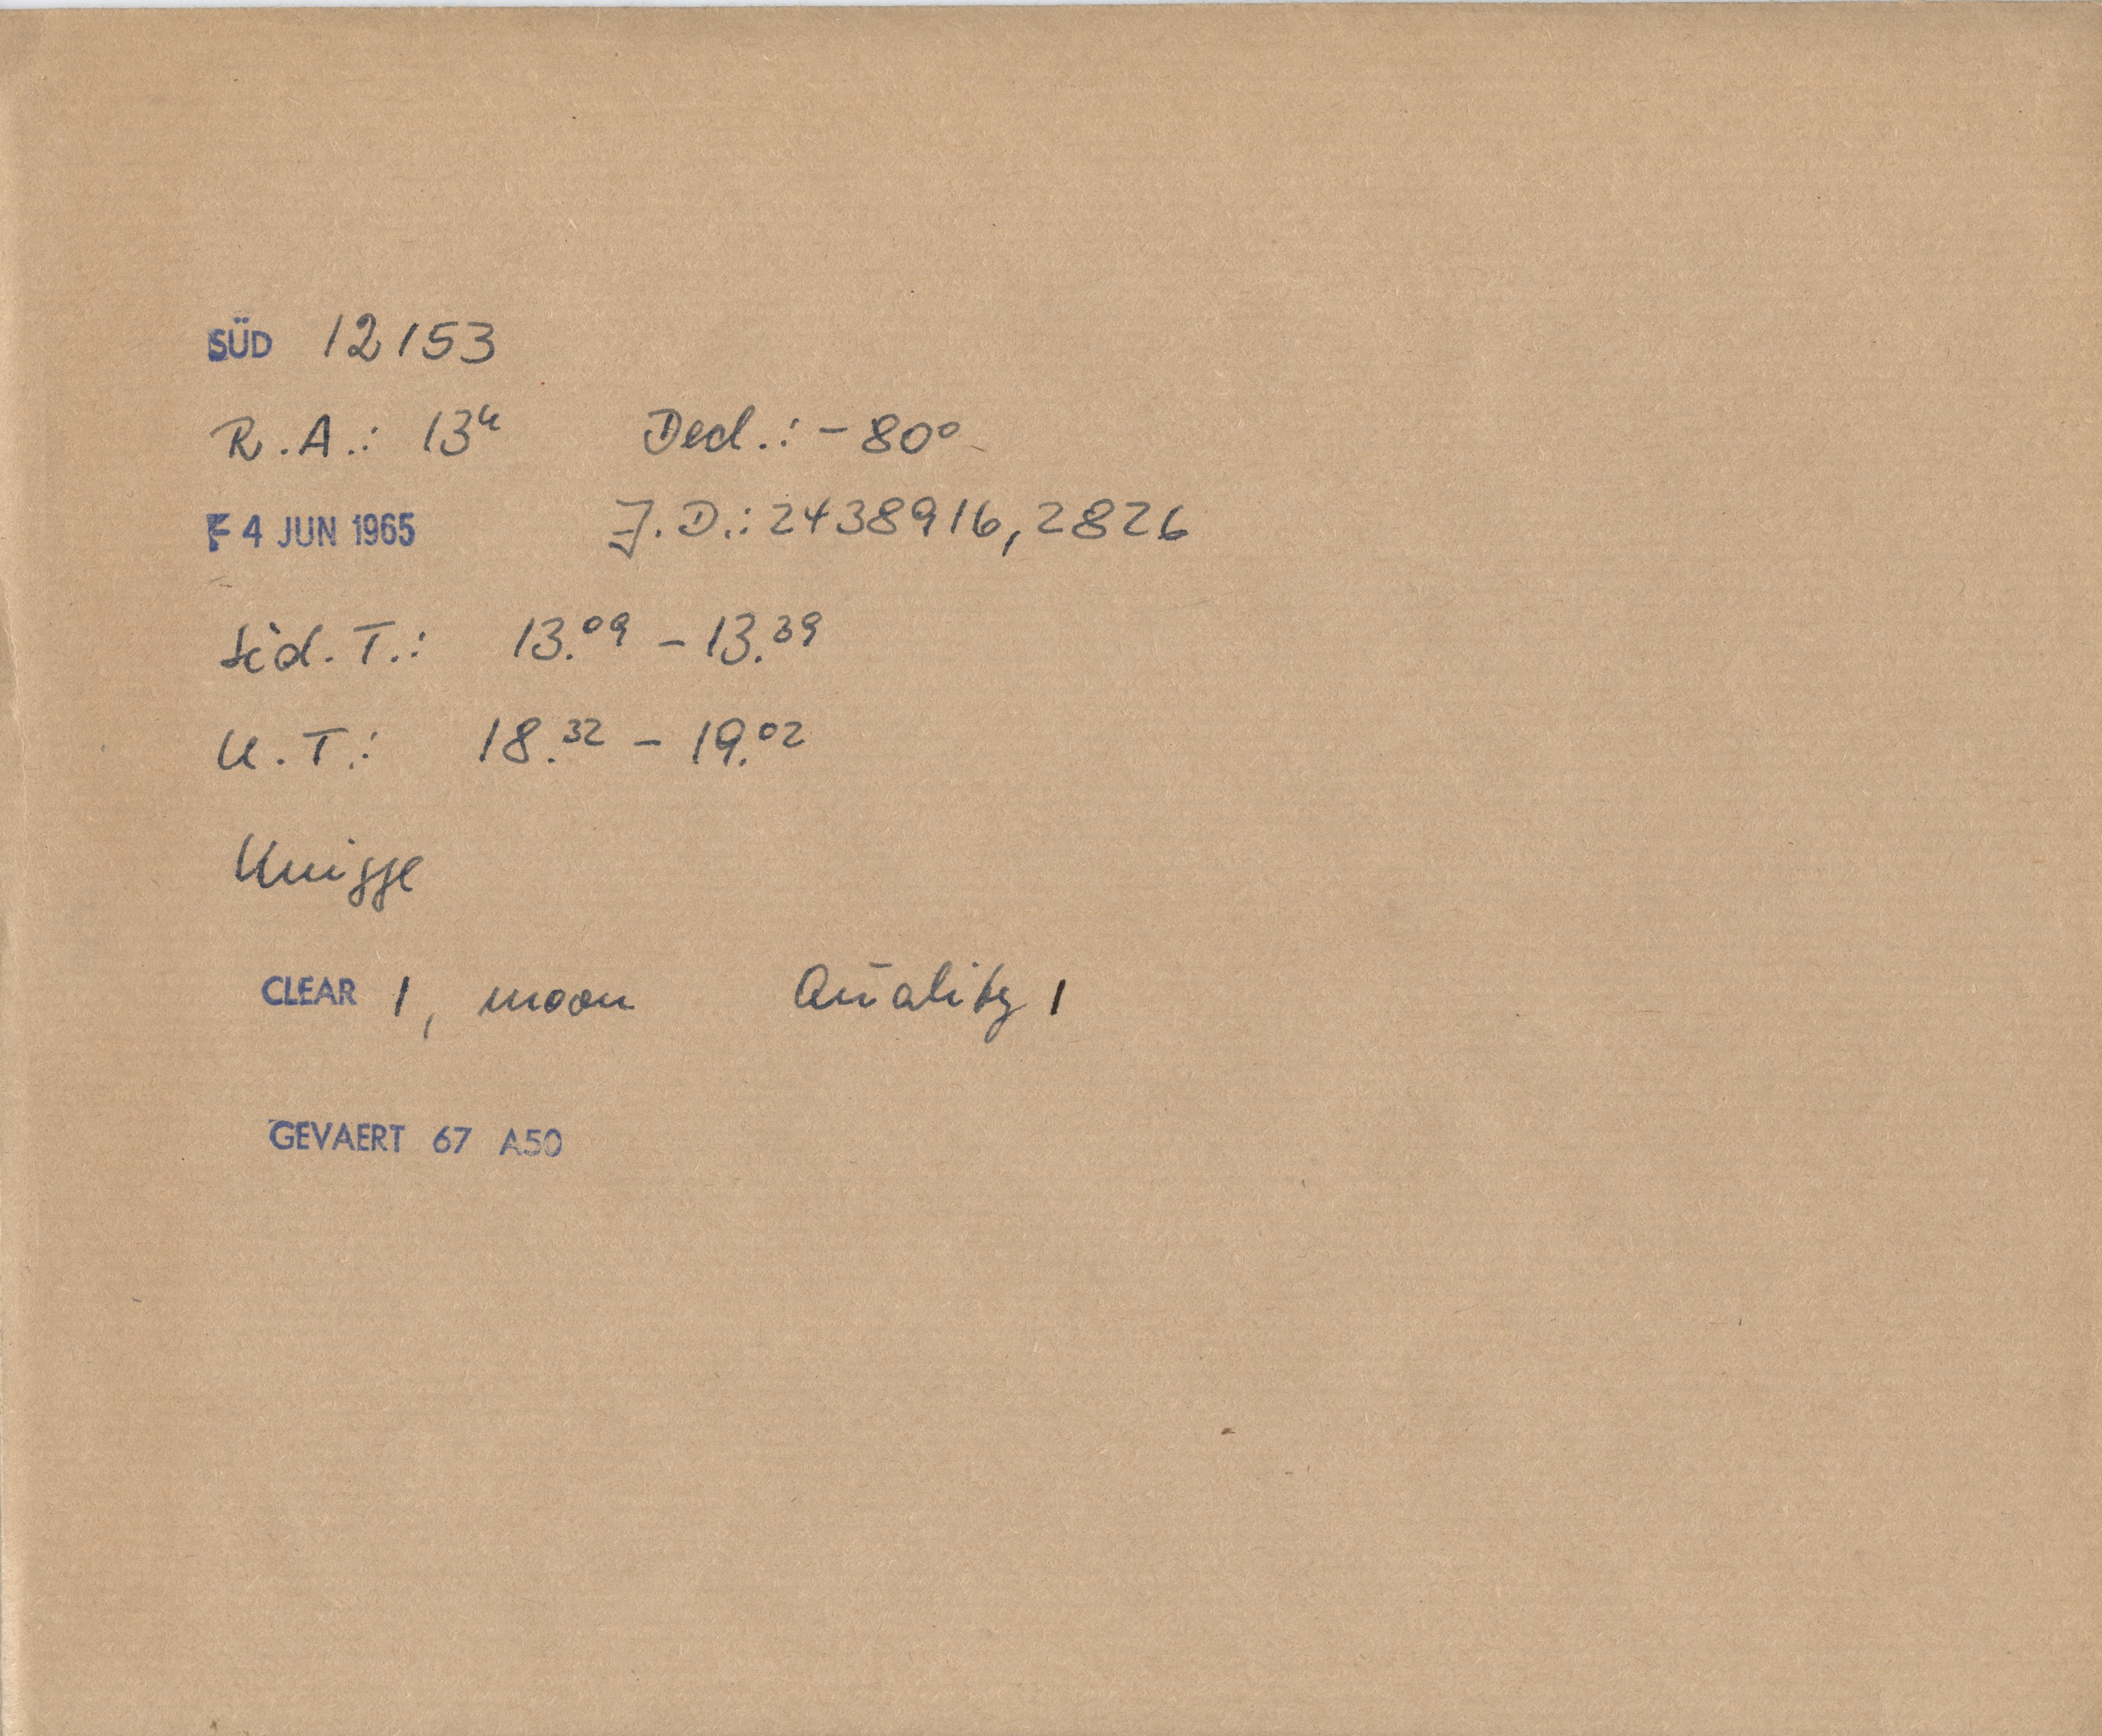 SÜD 12153
R.A.: 13ʰ Decl.: -80°
F 4 JUN 1965 J.D.: 2438916,2826
Sid. T.: 13.⁰⁹ - 13.³⁹
U.T.: 18.³² - 19.⁰²
Knigge
CLEAR 1, moon Quality 1
GEVAERT 67 A50